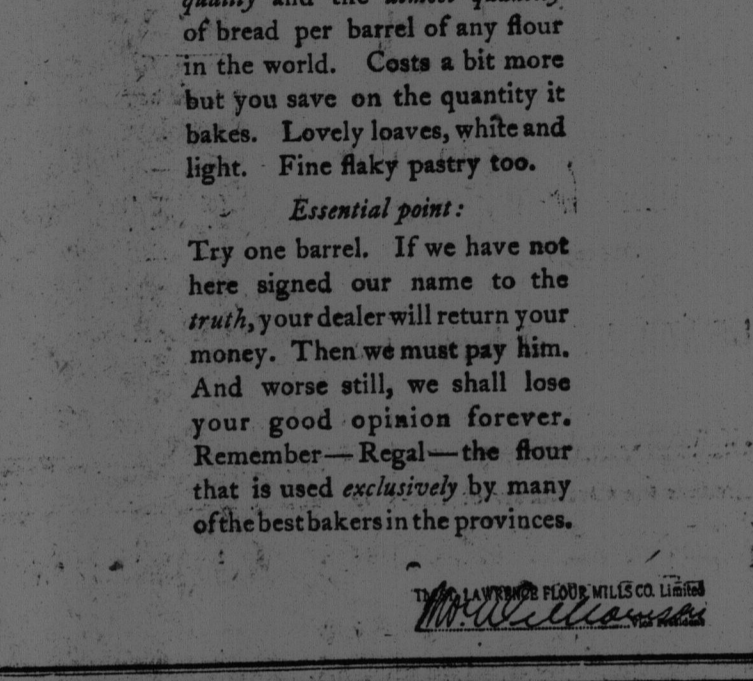 quality and the utmost quantity
of bread per barrel of any flour
in the world. Costs a bit more
but you save on the quantity it
bakes. Lovely loaves, white and
light. Fine flaky pastry too.
Essential point:
Try one barrel. If we have not
here signed our name to the
truth, your dealer will return your
money. Then we must pay him.
And worse still, we shall lose
your good opinion forever.
Remember—Regal—the flour
that is used exclusively by many
of the best bakers in the provinces.
LAWRENCE FLOUR MILLS CO. Limited
Williamson